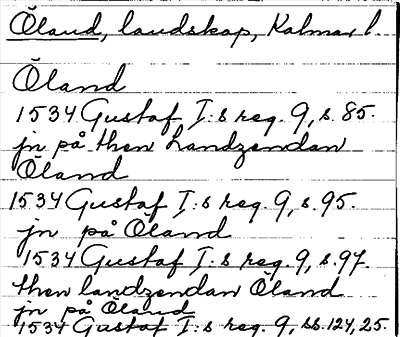 Öland, landskap, Kalmar l.
Öland
1534 Gustaf I:s reg. 9, s. 85.
jn på then Landzendan
Öland
1534 Gustaf I:s reg. 9, s. 95.
jn på Öland
1534 Gustaf I:s reg. 9, s. 97.
then landzendan Öland
jn på Öland
1534 Gustaf I:s reg. 9, ss. 124, 25.